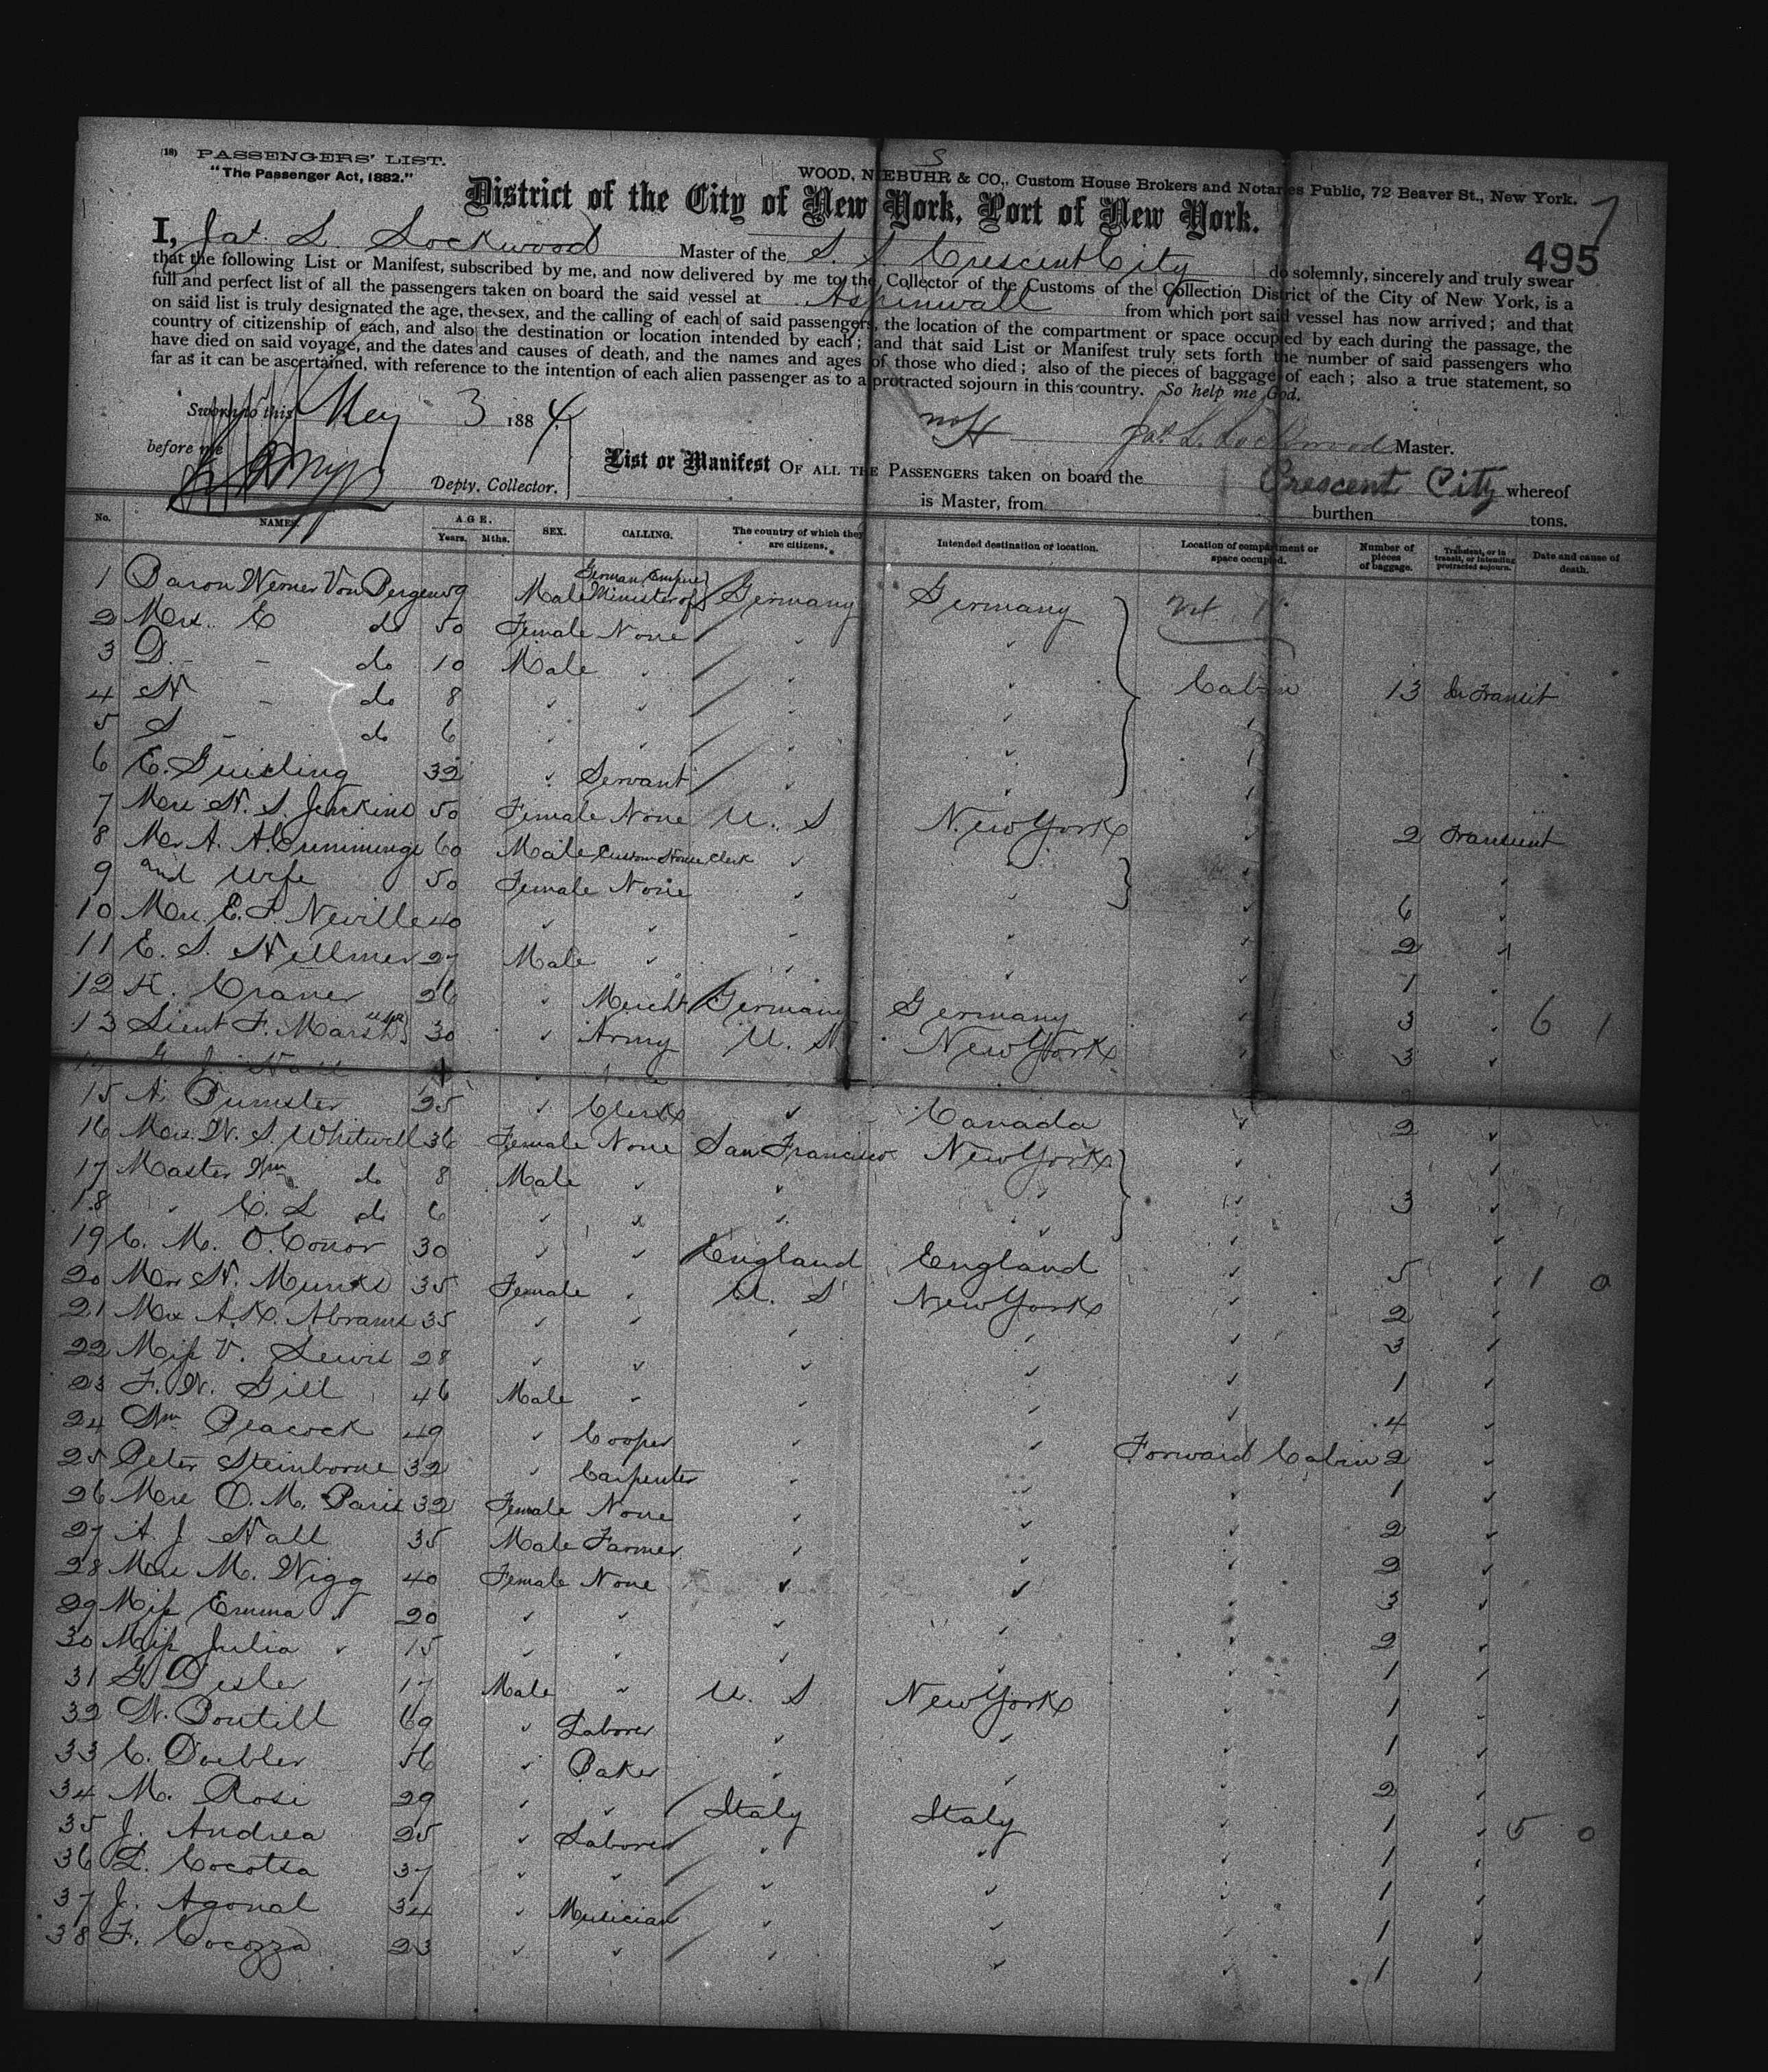 (18) PASSENGERS' LIST.
"The Passenger Act, 1882."
WOOD, NIEBUHR & CO., Custom House Brokers and Notaries Public, 72 Beaver St., New York.
District of the City of New York, Port of New York.
495
I, Jas. L. Lockwood Master of the S. S. Crescent City do solemnly, sincerely and truly swear
that the following List or Manifest, subscribed by me, and now delivered by me to the Collector of the Customs of the Collection District of the City of New York, is a
full and perfect list of all the passengers taken on board the said vessel at Aspinwall from which port said vessel has now arrived; and that
on said list is truly designated the age, the sex, and the calling of each of said passengers, the location of the compartment or space occupied by each during the passage, the
country of citizenship of each, and also the destination or location intended by each; and that said List or Manifest truly sets forth the number of said passengers who
have died on said voyage, and the dates and causes of death, and the names and ages of those who died; also of the pieces of baggage of each; also a true statement, so
far as it can be ascertained, with reference to the intention of each alien passenger as to a protracted sojourn in this country. So help me God.
Sworn to this May 3 1884
Jas. L. Lockwood Master.
before me
Depty. Collector.
List or Manifest OF ALL THE PASSENGERS taken on board the Crescent City whereof
is Master, from burthen tons.
No. NAMES. AGE. Years. Mths. SEX. CALLING. The country of which they are citizens. Intended destination or location. Location of compartment or space occupied. Number of pieces of baggage. Transient, or in transit, or intending protracted sojourn. Date and cause of death.
1 Baron Werner Von Bergen 59 Male German Empire Minister of Germany Germany
2 Mrs. E do 50 Female None " "
3 D. - - do 10 Male " " "
4 H - do 8 " " " " Cabin 13 In Transit
5 S - do 6 " " " " "
6 E. Guisling 32 " Servant " " "
7 Mrs H. S. Jenkins 50 Female None U. S New York " 2 Transient
8 Mr A. A. Cummings 60 Male Custom House Clerk " " " "
9 and wife 50 Female None " " " 6 "
10 Mrs. E. F. Neville 40 " " " " " 2 "
11 E. S. Hellmer 27 Male " " " " 1 "
12 H. Craner 26 " Mercht Germany Germany " 3 " 6 1
13 Lieut F. Marsh USA 30 " Army U. S. New York " 3 "
J. Hall
15 A. Bumster 25 " Clerk " Canada " 2 "
16 Mrs. W. S. Whitwell 36 Female None San Francisco New York " "
17 Master Wm do 8 Male " " " " 3 "
18 " C. L do 6 " " " " " "
19 C. M. O'Conor 30 " " England England " 5 " 1 0
20 Mrs H. Munks 35 Female " U. S New York " 2 "
21 Mrs A. K. Abrams 35 " " " " " 3 "
22 Miss V. Lewis 28 " " " " " 1 "
23 F. W. Gill 46 Male " " " " 4 "
24 Wm Peacock 49 " Cooper " " Forward Cabin 2 "
25 Peter Steinborne 32 " Carpenter " " " 1 "
26 Mrs O. M. Paris 32 Female None " " " 2 "
27 A. J Hall 35 Male Farmer " " " 2 "
28 Mrs M. Wigg 40 Female None " " " 3 "
29 Miss Emma " 20 " " " " " 2 "
30 Miss Julia " 15 " " " " " 1 "
31 G. Disler 17 Male " U. S New York " 1 "
32 W. Boutill 69 " Laborer " " " 1 "
33 C. Doebler 56 " Baker " " " 2 "
34 M. Rosi 29 " " Italy Italy " 1 " 5 0
35 J. Andrea 25 " Laborer " " " 1 "
36 L. Cocotsa 37 " " " " " 1 "
37 J. Agonal 34 " Musician " " " 1 "
38 F. Cocozza 23 " " " " " 1 "